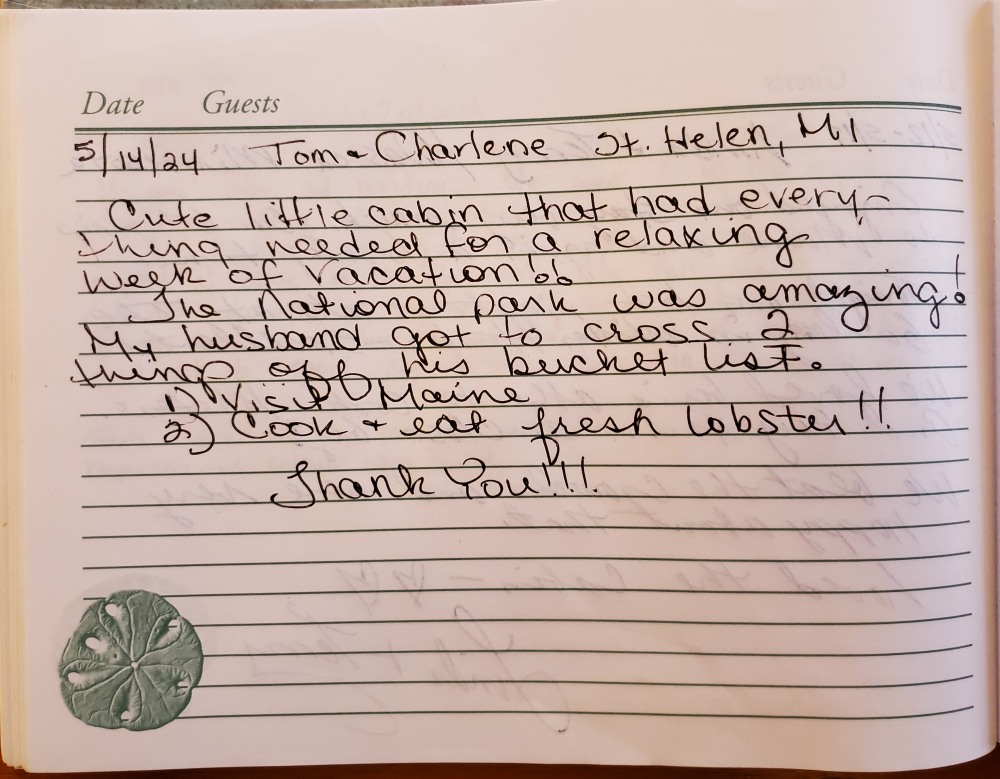 Date Guests
5/14/24 Tom & Charlene St. Helen, MI
Cute little cabin that had every-
thing needed for a relaxing
week of vacation!!
The National park was amazing!
My husband got to cross 2
things off his bucket list.
1) Visit Maine
2) Cook + eat fresh lobster!!
Thank You!!!!